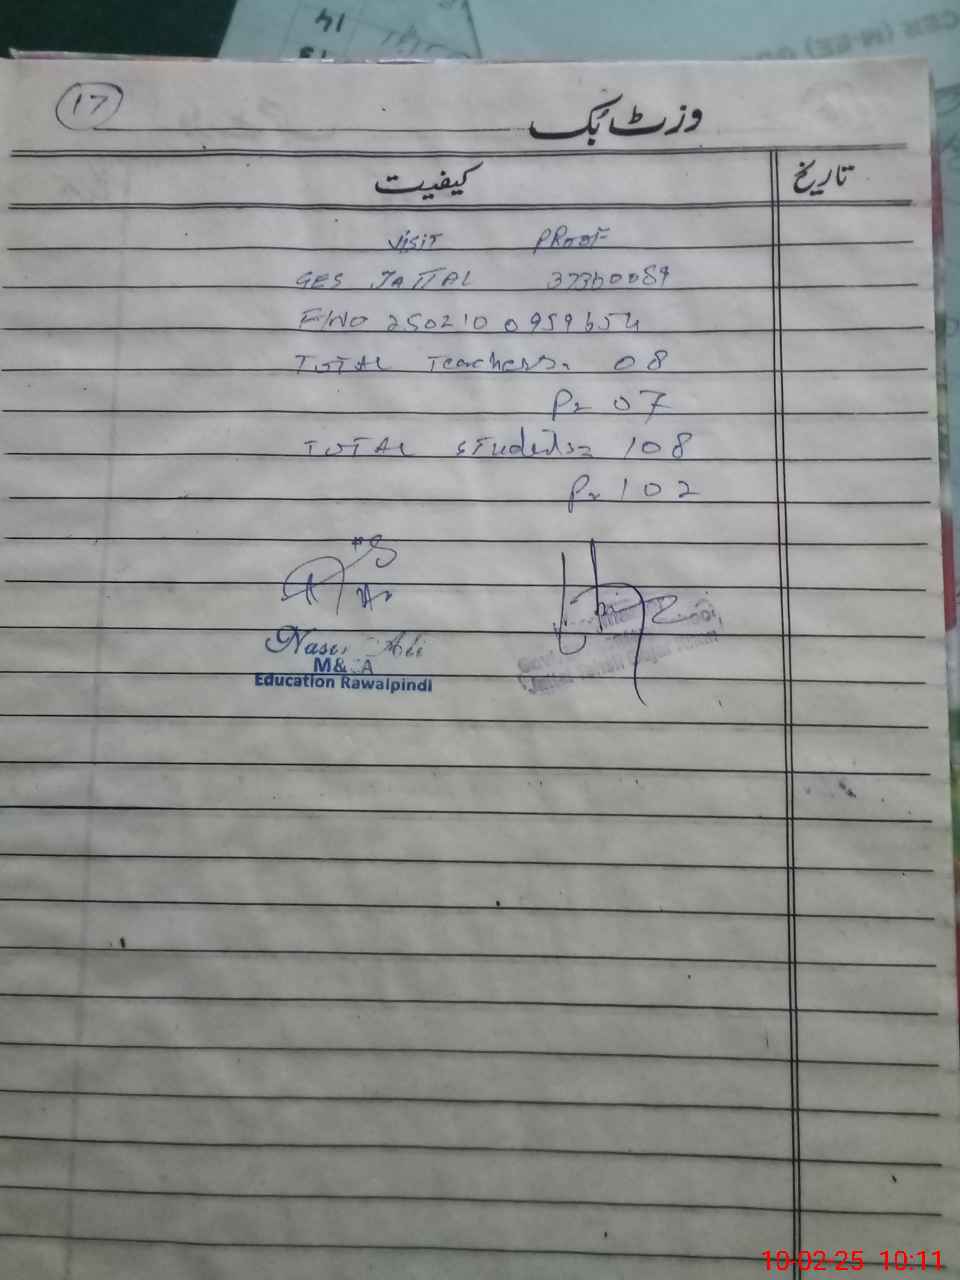 14
17
وزٹ بک
تاریخ
کیفیت
Visit PRooF
GES JATTAL 37360089
F/NO 250210 0959654
TOTAL Teachers= 08
P= 07
TOTAL students= 108
P= 102
Nasir Ali
M&EA
Education Rawalpindi
10-02-25 10:11